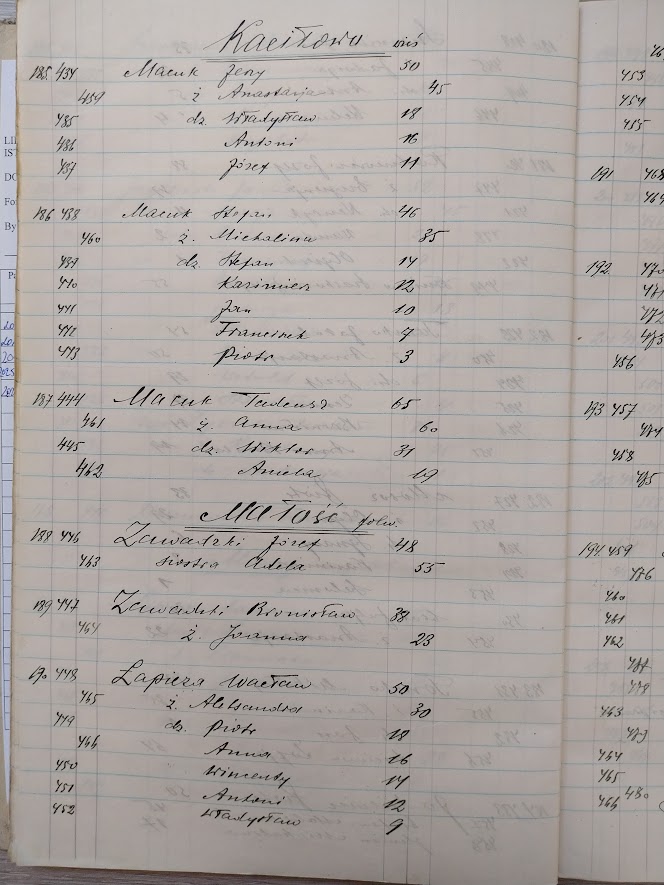 Kaciłowo wieś
185. 434 Macuk Jerzy 50
459 ż Anastazja 45
435 dz. Władysław 18
436 Antoni 16
437 Józef 11
186 438 Macuk Stefan 46
460 ż. Michalina 35
439 dz. Stefan 14
440 Kazimierz 12
441 Jan 10
442 Franciszek 7
443 Piotr 3
187 444 Macuk Tadeusz 65
461 ż. Anna 60
445 dz. Wiktor 31
462 Aniela 19
Małość folw.
188 446 Zawadzki Józef 48
463 siostra Adela 55
189 447 Zawadzki Bronisław 38
464 ż. Joanna 23
190 448 Łapieza Wacław 50
465 ż. Aleksandra 30
449 dz. Piotr 18
466 Anna 16
450 Wincenty 14
451 Antoni 12
452 Władysław 9
453
454
455
191
192. 470
471
472
473
456
193 457
474
458
475
194. 459
476
460
461
462
477
478
463
479
464
465
466 480